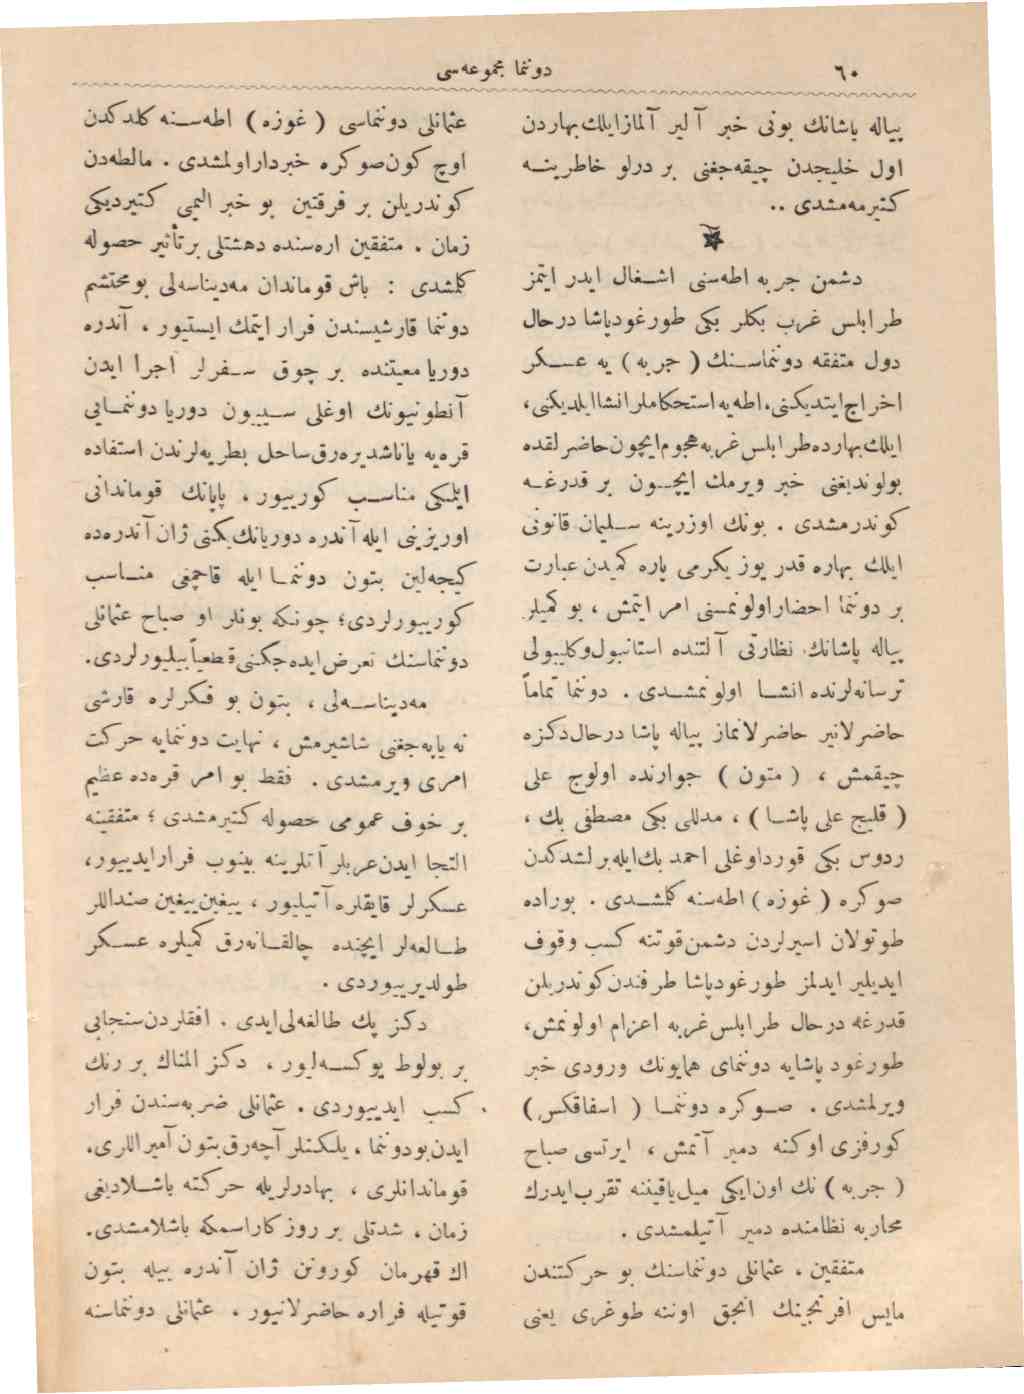 ٦٠
دوننما مجموعه‌سی
پیاله پاشانك بونی خبر آلیر آلماز ایلك بهاردن
اول خلیجدن چیقه‌جغنی بر درلو خاطرینـه
كتیرمه‌مشدی ..
دشمن جربه اطه‌سنی اشـغال ایدر ایتمز
طرابلس غرب بكلر بكی طورغود پاشا درحال
دول متفقه دوننماسـنك ( جربه ) یه عسـكر
اخراج ایتدیكنی، اطه‌یه استحكاملر انشا ایلدیكنی،
ایلك بهارده طرابلس غربه هجوم ایچون حاضرلقده
بولوندیغنی خبر ویرمك ایچـون بر قدرغـه
كوندرمشدی . بونك اوزرینه سـلیمان قانونی
ایلك بهاره قدر یوز یكرمی پاره كمیدن عبارت
بر دوننما احضار اولونمسنی امر ایتمش ، بو كمیلر
پیاله پاشانك نظارتی آلتنده استانبول وكلیبولی
ترسانه‌لرنده انشـا اولونمشـدی . دوننما تماماً
حاضرلانیر حاضرلانماز پیاله پاشا درحال دكزه
چیقمش ، ( متون ) جوارنده اولوج علی
( قلیج علی پاشـا ) ، مدللی بكی مصطفی بك ،
ردوس بكی قورد اوغلی احمد بك ایله برلشدكدن
صوكره ( غوزه ) اطه‌سنه كلمشـدی . بوراده
طوتولان اسیرلردن دشمن قوتنه كسب وقوف
ایدیلیر ایدلمز طورغود پاشا طرفندن كوندریلن
قدرغه درحال طرابلس غربه اعزام اولونمش،
طورغود پاشایه دوننمای همایونك ورودی خبر
ویرلمشدی . صـوكره دوننمـا ( اسفاقكس )
كورفزی اوكنه دمیر آتمش ، ایرتسی صباح
( جربه ) نك اون ایكی میل یاقیننه تقرب ایدرك
محاربه نظامنده دمیر آتیلمشدی .
متفقین ، عثمانلی دوننماسنك بو حركتندن
مایس افرنجینك انجق اوننه طوغری یعنی
عثمانلی دوننماسی ( غوزه ) اطه‌سـنه كلدكدن
اوچ كون صوكره خبردار اولمشدی . مالطه‌دن
كوندریلن بر فرقتین بو خبر الیمی كتیردیكی
زمان ، متفقین اره‌سنده دهشتلی بر تأثیر حصوله
كلمشدی : باش قوماندان مه‌دیناسه‌لی بو محتشم
دوننما قارشیسندن فرار ایتمك ایستیور ، آندره
دوریا معیتنده بر چوق سـفرلر اجرا ایدن
آنطونیونك اوغلی سـیپیون دوریا دوننمـایی
قره‌یه یاناشدیره‌رق ساحل بطریه‌لرندن استفاده
ایلمكی مناسـب كورییور ، پاپانك قوماندانی
اورزینی ایله آندره دوریانك یكنی ژان آندره‌ده
كیجه‌لین بتون دوننمـا ایله قاچمغی منـاسب
كورییورلردی؛ چونكه بونلر او صباح عثمانلی
دوننماسنك تعرض ایده‌جكنی قطعیاً بیلیورلردی.
مه‌دیناسـه‌لی ، بتون بو فكرلره قارشی
نه یاپه‌جغنی شاشیرمش ، نهایت دوننمایه حركت
امری ویرمشدی . فقط بو امر قره‌ده عظیم
بر خوف عمومی حصوله كتیرمشدی ؛ متفقینه
التجا ایدن عربلر آتلرینه بینوب فرار ایدییور،
عسكرلر قایقلره آتیلیور ، ییغین ییغین صنداللر
طـالغه‌لر ایچنده چالقـانه‌رق كمیلره عسـكر
طولدیرییوردی .
دكز پك طالغه‌لی ایدی . افقلردن سنجابی
بر بولوط یوكسـه‌لیور ، دكز المناك بر رنك
كسب ایدییوردی . عثمانلی ضربه‌سندن فرار
ایدن بو دوننما ، یلكنلر آچه‌رق بتون آمیراللری،
قوماندانلری ، بهادرلریله حركته باشـلادیغی
زمان ، شدتلی بر روزكار اسمكه باشلامشدی.
اك قهرمان كورونن ژان آندره بیله بتون
قوتیله فراره حاضرلانیور ، عثمانلی دوننماسنه